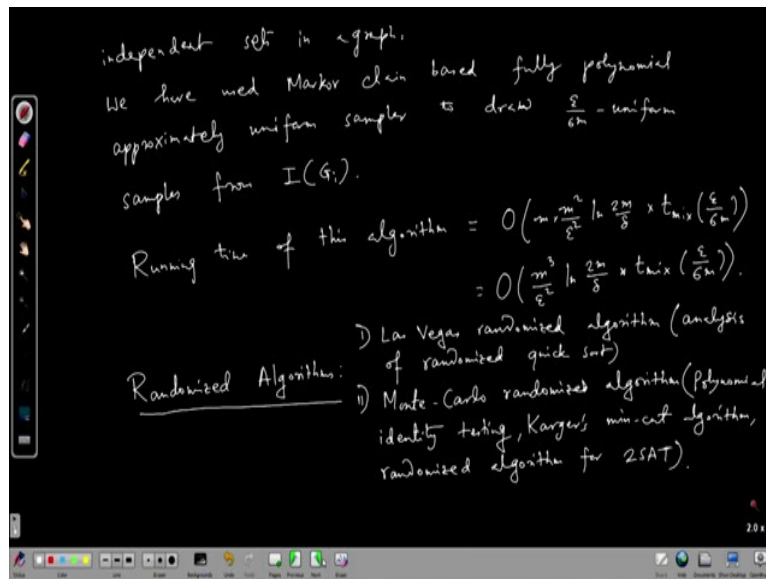 independent sets in a graph.
We have used Markov chain based fully polynomial
approximately uniform sampler to draw ε/6m - uniform
samples from I(Gᵢ).
Running time of this algorithm = O(m × m²/ε² ln 2m/δ × t_mix (ε/6m))
= O(m³/ε² ln 2m/δ × t_mix (ε/6m)).
Randomized Algorithms:
I) Las Vegas randomized algorithm (analysis
of randomized quick sort)
II) Monte-Carlo randomized algorithm (Polynomial
identity testing, Karger's min-cut algorithm,
randomized algorithm for 2SAT).
2.0 x